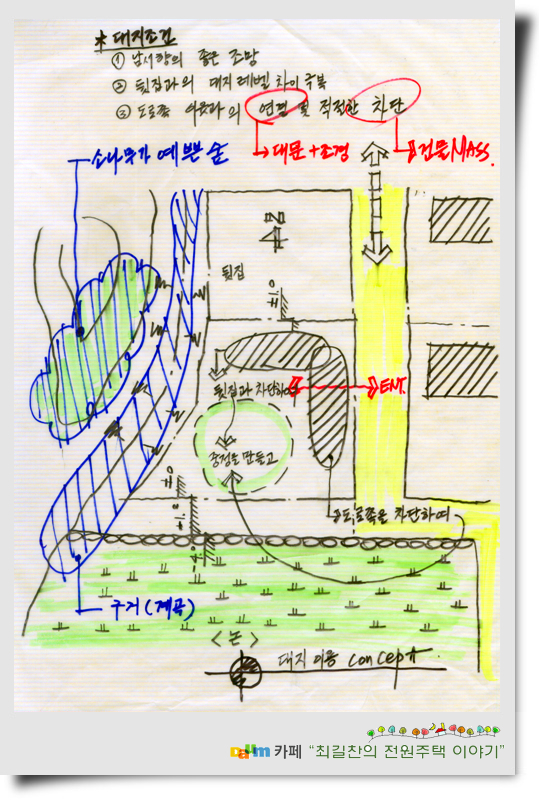 * 대지조건
① 남서향의 좋은 조망
② 뒷집과의 대지레벨 차이 극복
③ 도로쪽 이웃과의 연결 및 적절한 차단
소나무가 예쁜 숲
대문+조경
건물MASS.
뒷집
±1.0
뒷집과 차단하여
ENT.
중정을 만들고
±0
도로쪽을 차단하여
구거(계곡)
<논>
대지이용 concept.
Daum 카페 "최길찬의 전원주택 이야기"